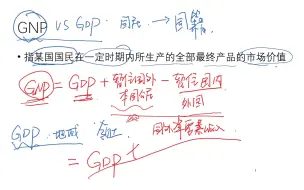 GNP VS GDP 国民 → 国籍
• 指某国国民在一定时期内所生产的全部最终产品的市场价值
GNP = GDP + 暂住国外本国公民 - 暂住国内外国
GDP 地域 领土
= GDP +